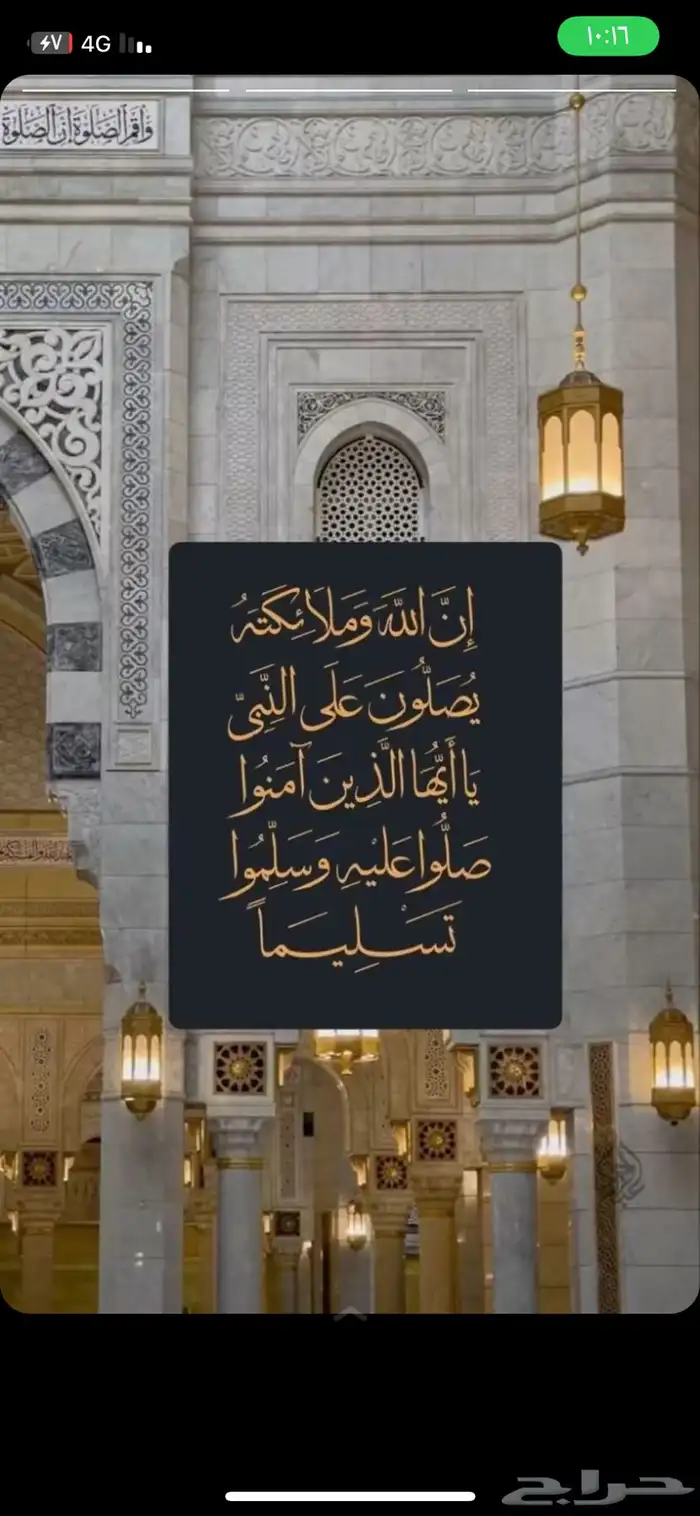 ١٠:١٦
4G
٧
وأقم الصلوة إن الصلوة
إِنَّ اللَّهَ وَمَلَائِكَتَهُ
يُصَلُّونَ عَلَى النَّبِيِّ
يَا أَيُّهَا الَّذِينَ آمَنُوا
صَلُّوا عَلَيْهِ وَسَلِّمُوا
تَسْلِيماً
حراج